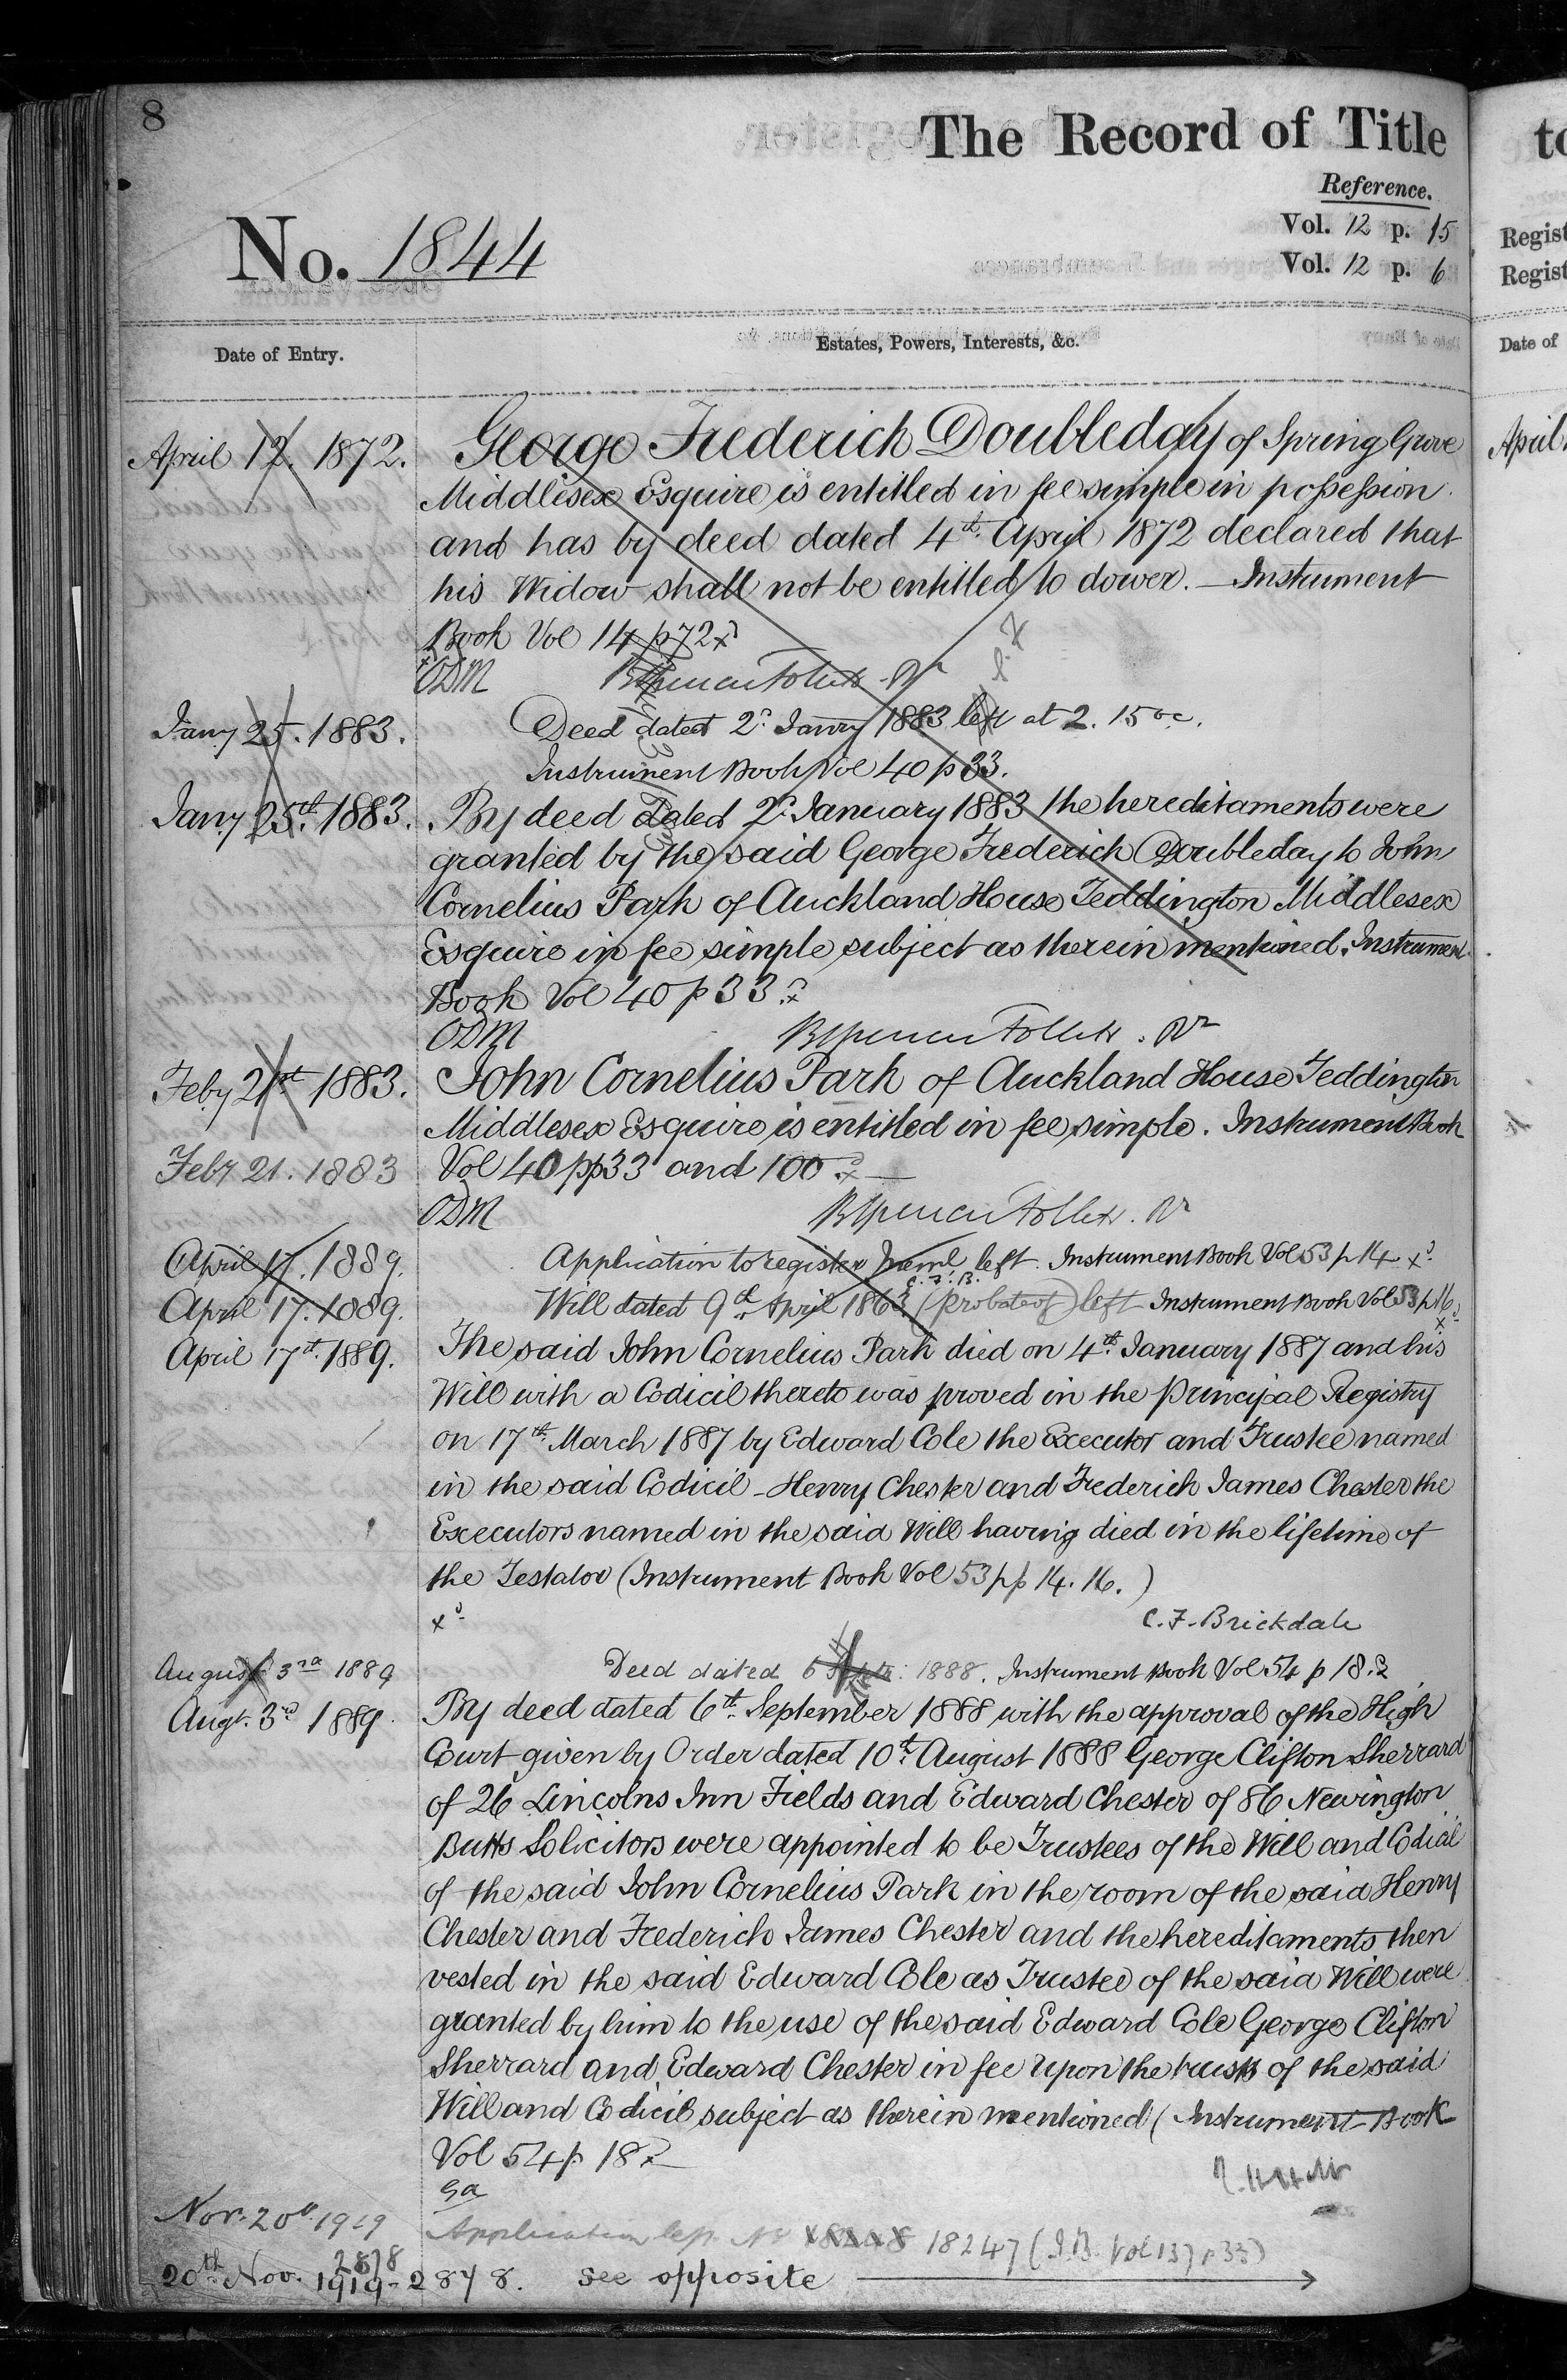 8
The Record of Title
Reference.
No. 1844
Vol. 12 p. 15
Vol. 12 p. 6
Date of Entry.
Estates, Powers, Interests, &c.
April 12. 1872.
George Frederick Doubleday of Spring Grove
Middlesex Esquire is entitled in fee simple in possession
and has by deed dated 4th April 1872 declared that
his Widow shall not be entitled to dower. — Instrument
Book Vol 14 p 72
ODM
Jany 25. 1883.
Deed dated 2d Janry 1883 left at 2.15
Instrument Book Vol 40 p 33.
Jany 25th 1883.
By deed dated 2d January 1883 the hereditaments were
granted by the said George Frederick Doubleday to John
Cornelius Park of Auckland House Teddington Middlesex
Esquire in fee simple subject as therein mentioned. Instrument
Book Vol 40 p 33
ODM
Feby 21st 1883.
John Cornelius Park of Auckland House Teddington
Middlesex Esquire is entitled in fee simple. Instrument Book
Feby 21. 1883
Vol 40 pp 33 and 100
ODM
April 17. 1889.
Application to register left. Instrument Book Vol 53 p 14
C.F.B.
April 17. 1889.
Will dated 9th April 1863 (probate of) left Instrument Book Vol 53 p 16
April 17th 1889.
The said John Cornelius Park died on 4th January 1887 and his
Will with a Codicil thereto was proved in the Principal Registry
on 17th March 1887 by Edward Cole the Executor and Trustee named
in the said Codicil - Henry Chester and Frederick James Chester the
Executors named in the said Will having died in the lifetime of
the Testator (Instrument Book Vol 53 pp 14. 16.)
C.F. Brickdale
August 3rd 1889
Deed dated 6 Septr. 1888. Instrument Book Vol 54 p 18.
Augt. 3rd 1889.
By deed dated 6th September 1888 with the approval of the High
Court given by Order dated 10th August 1888 George Clifton Sherrard
of 26 Lincolns Inn Fields and Edward Chester of 86 Newington
Butts Solicitors were appointed to be Trustees of the Will and Codicil
of the said John Cornelius Park in the room of the said Henry
Chester and Frederick James Chester and the hereditaments then
vested in the said Edward Cole as Trustee of the said Will were
granted by him to the use of the said Edward Cole George Clifton
Sherrard and Edward Chester in fee Upon the trusts of the said
Will and Codicil subject as therein mentioned (Instrument Book
Vol 54 p 18
Nov. 20th 1919
Application left No 18247 (I.B. Vol 137 p 33)
2878
20th Nov. 1919 - 2878. see opposite
to
Regist
Regist
Date of
April